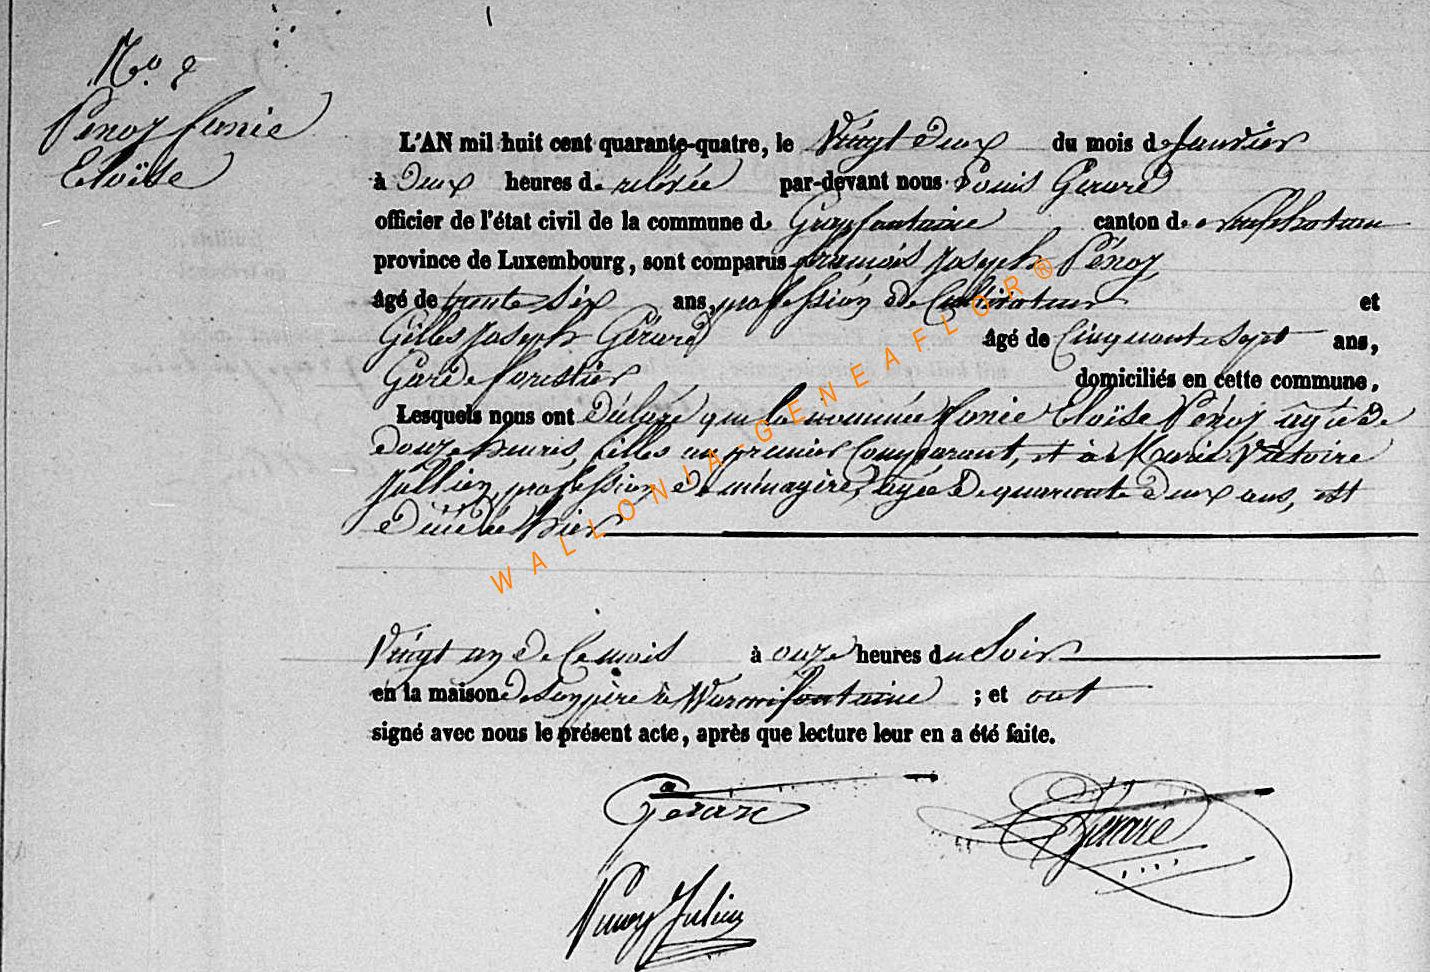 No 2
Pénoy fanie
Eloïse
L'AN mil huit cent quarante-quatre, le Vingt deux du mois de Janvier
à deux heures de relevée par-devant nous Louis Gérard
officier de l'état civil de la commune de Grapfontaine canton de Neufchateau
province de Luxembourg, sont comparus francois Joseph Pénoy
âgé de trente six ans, profession de Cultivateur et
Gilles Joseph Gérard âgé de Cinquante Sept ans,
Garde forestier domiciliés en cette commune.
Lesquels nous ont déclaré que la nommée fanie Eloïse Pénoy agée de
douze heures, filles au premier Comparant, et à Marie Victoire
Jullien, profession de ménagère, agée de quarante deux ans, est
décédée hier
Vingt un de Ce mois à onze heures du Soir
en la maison de son père à Warmifontaine ; et ont
signé avec nous le présent acte, après que lecture leur en a été faite.
Gerard
Gerard
Penoy Julien
WALLONIA-GENEAFLOR®